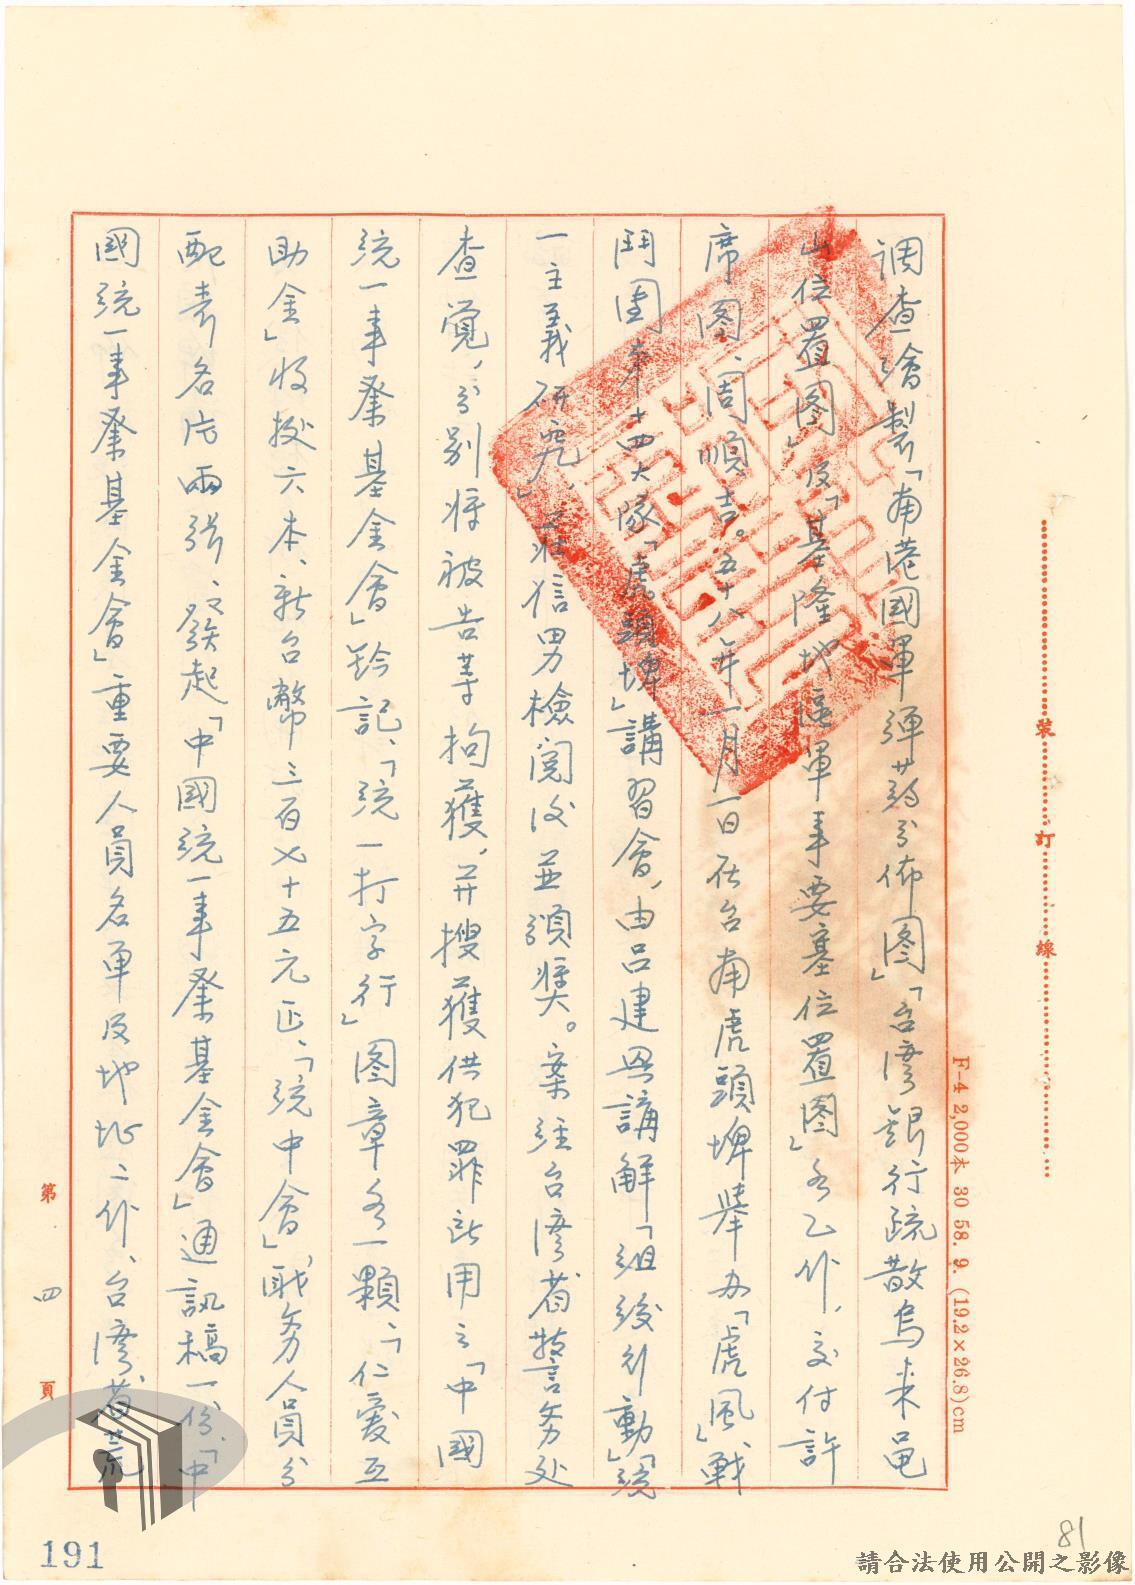 調查繪製「南港國軍弹葯分佈图」「台湾銀行疏散烏来龟
山位置图」及「基隆地區軍事要塞位置图」各乙件，交付許
席图、周順吉。五十八年一月一日在台南虎頭埤舉办「虎風」戰
鬥團第十四大隊「虎頭埤」講習會，由呂建興講解「組織行動」「統
一主義研究」，並信男檢閱後並頒獎。案經台湾省警务处
查覺，分别将被告等拘獲，并搜獲供犯罪所用之「中國
统一事業基金會」鈐記、「統一打字行」图章各一顆、「仁爱互
助金」收据六本、新台幣三百七十五元正、「統中會」职务人員分
配表名店兩張、發起「中國統一事業基金會」通訊稿一份、「中
國統一事業基金會」重要人員名單及地址二件、台湾省荒
第四頁
裝訂線
F-4 2,000本 30 58. 9. (19.2×26.8)cm
191
81
請合法使用公開之影像